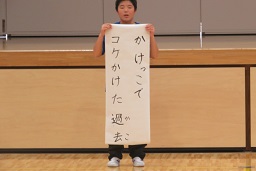 かけっこで
コケかけた過去
かこ